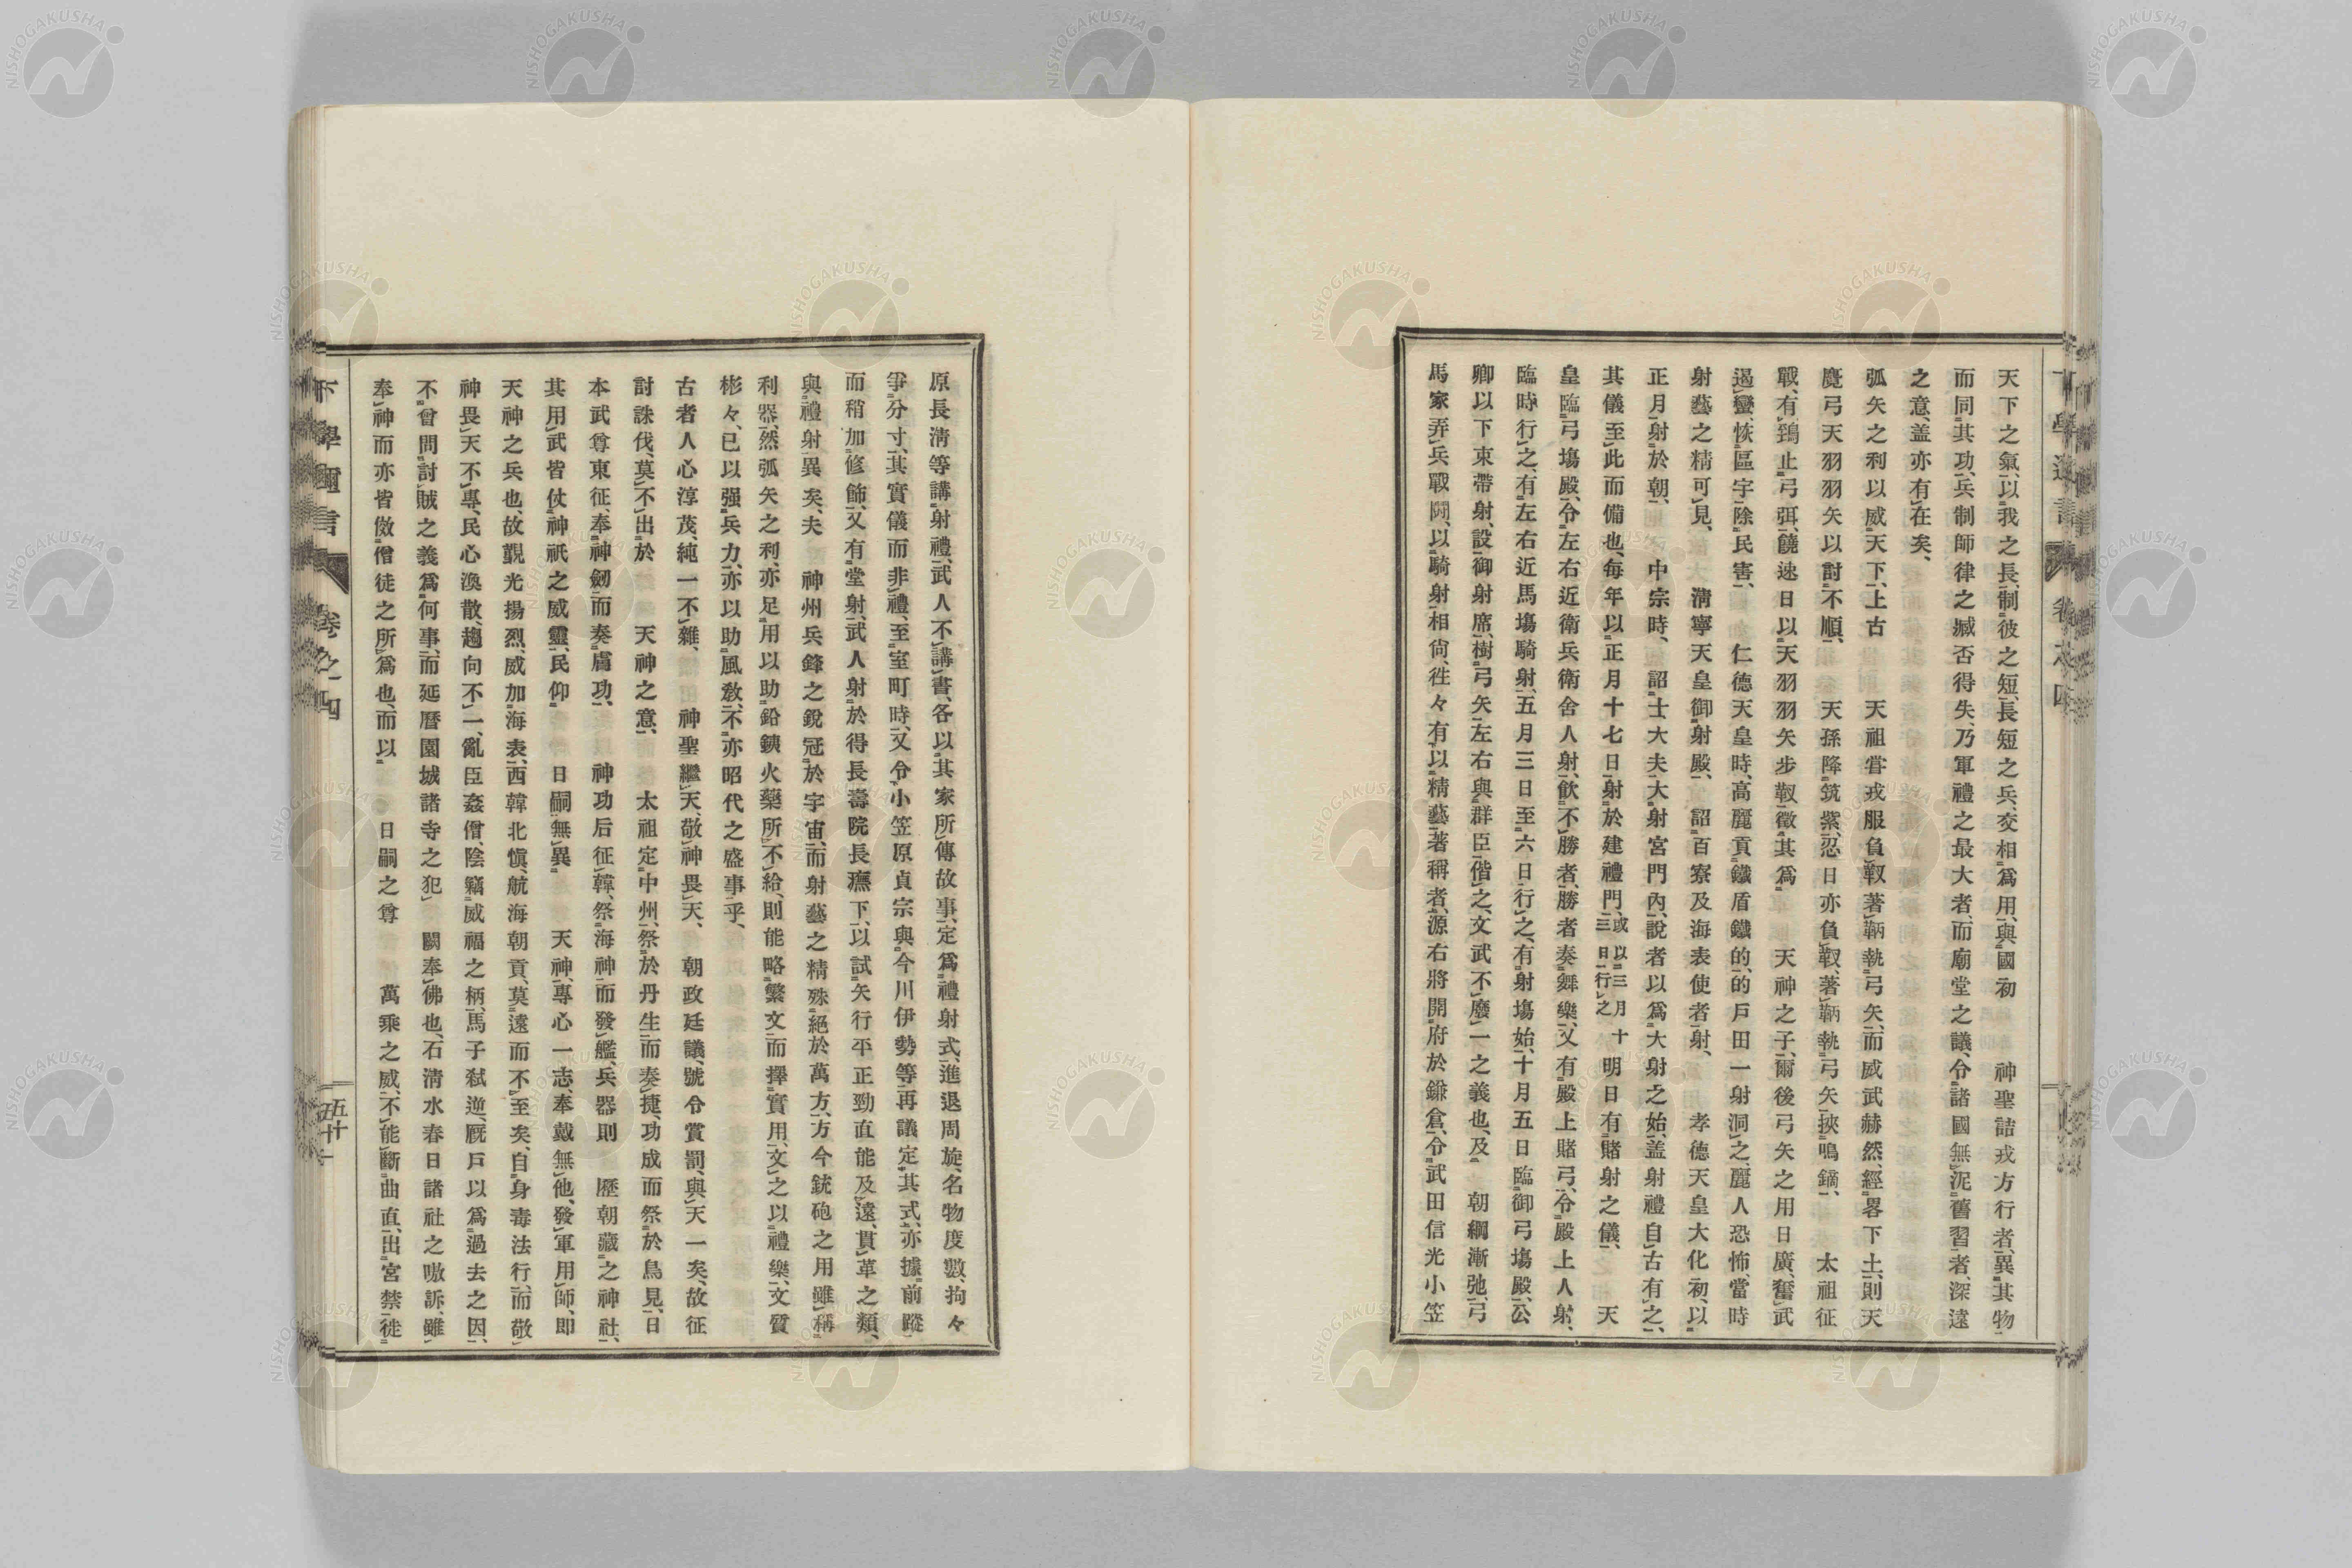 天下之氣、以我之長、制彼之短、長短之兵、交相爲用、與國初 神聖詰戎方行者、異其物
而同其功、兵制師律之臧否得失、乃軍禮之最大者、而廟堂之議、令諸國無泥舊習者、深遠
之意、盖亦有在矣、
弧矢之利以威天下、上古 天祖甞戎服負靫著鞆執弓矢、而威武赫然、經畧下土、則天
麑弓天羽羽矢以討不順、 天孫降筑紫、忍日亦負靫、著鞆執弓矢、挾鳴鏑、 太祖征
戰、有鵄止弓弭、饒速日以天羽羽矢步靫徵其爲 天神之子、爾後弓矢之用日廣、奮武
遏蠻、恢區宇除民害、 仁德天皇時、高麗貢鐵盾鐵的、的戶田一射洞之、麗人恐怖、當時
射藝之精可見、 淸寧天皇御射殿、 詔百寮及海表使者射、 孝德天皇大化初、以
正月射於朝、 中宗時、 詔士大夫大射宮門內、說者以爲大射之始、盖射禮自古有之、
其儀至此而備也、每年以正月十七日射於建禮門、或以三月十三日行之 明日有賭射之儀、 天
皇臨弓塲殿、令左右近衛兵衛舍人射、飮不勝者、勝者奏舞樂、又有殿上賭弓、令殿上人射、
臨時行之、有左右近馬塲騎射、五月三日至六日行之、有射塲始、十月五日臨御弓塲殿、公
卿以下束帶射、設御射席、樹弓矢、左右與群臣偕之、文武不廢一之義也、及 朝綱漸弛、弓
馬家弄兵戰鬪、以騎射相尙、徃々有以精藝著稱者、源右將開府於鎌倉、令武田信光小笠
下學邇言 卷之四
原長淸等講射禮、武人不講書、各以其家所傳故事、定爲禮射式、進退周旋、名物度數、拘々
爭分寸、其實儀而非禮、至室町時、又令小笠原貞宗與今川伊勢等再議定其式、亦據前蹤
而稍加修飾、又有堂射、武人射於得長壽院長廡下、以試矢行平正勁直能及遠貫革之類、
與禮射異矣、夫 神州兵鋒之銳冠於宇宙、而射藝之精殊絕於萬方、方今銃砲之用雖稱
利器、然弧矢之利、亦足用以助鉛銕火藥所不給、則能略繁文而擇實用、文之以禮樂、文質
彬々、已以强兵力、亦以助風敎、不亦昭代之盛事乎、
古者人心淳茂、純一不雜、 神聖繼天、敬神畏天、 朝政廷議、號令賞罰、與天一矣、故征
討誅伐、莫不出於 天神之意、 太祖定中州、祭於丹生而奏捷、功成而祭於鳥見、日
本武尊東征、奉神劒而奏膚功、 神功后征韓、祭海神而發艦、兵器則 歷朝藏之神社、
其用武皆仗神祇之威靈、民仰 日嗣無異 天神、專心一志、奉戴無他、發軍用師、卽
天神之兵也、故覲光揚烈、威加海表、西韓北愼、航海朝貢、莫遠而不至矣、自身毒法行、而敬
神畏天不專、民心渙散、趨向不一、亂臣姦僧、陰竊威福之柄、馬子弑逆、厩戶以爲過去之因、
不曾問討賊之義爲何事、而延曆園城諸寺之犯 闕奉佛也、石淸水春日諸社之嗷訴、雖
奉神而亦皆倣僧徒之所爲也、而以 日嗣之尊 萬乘之威、不能斷曲直、出宮禁徙
下學邇言 卷之四
五十一